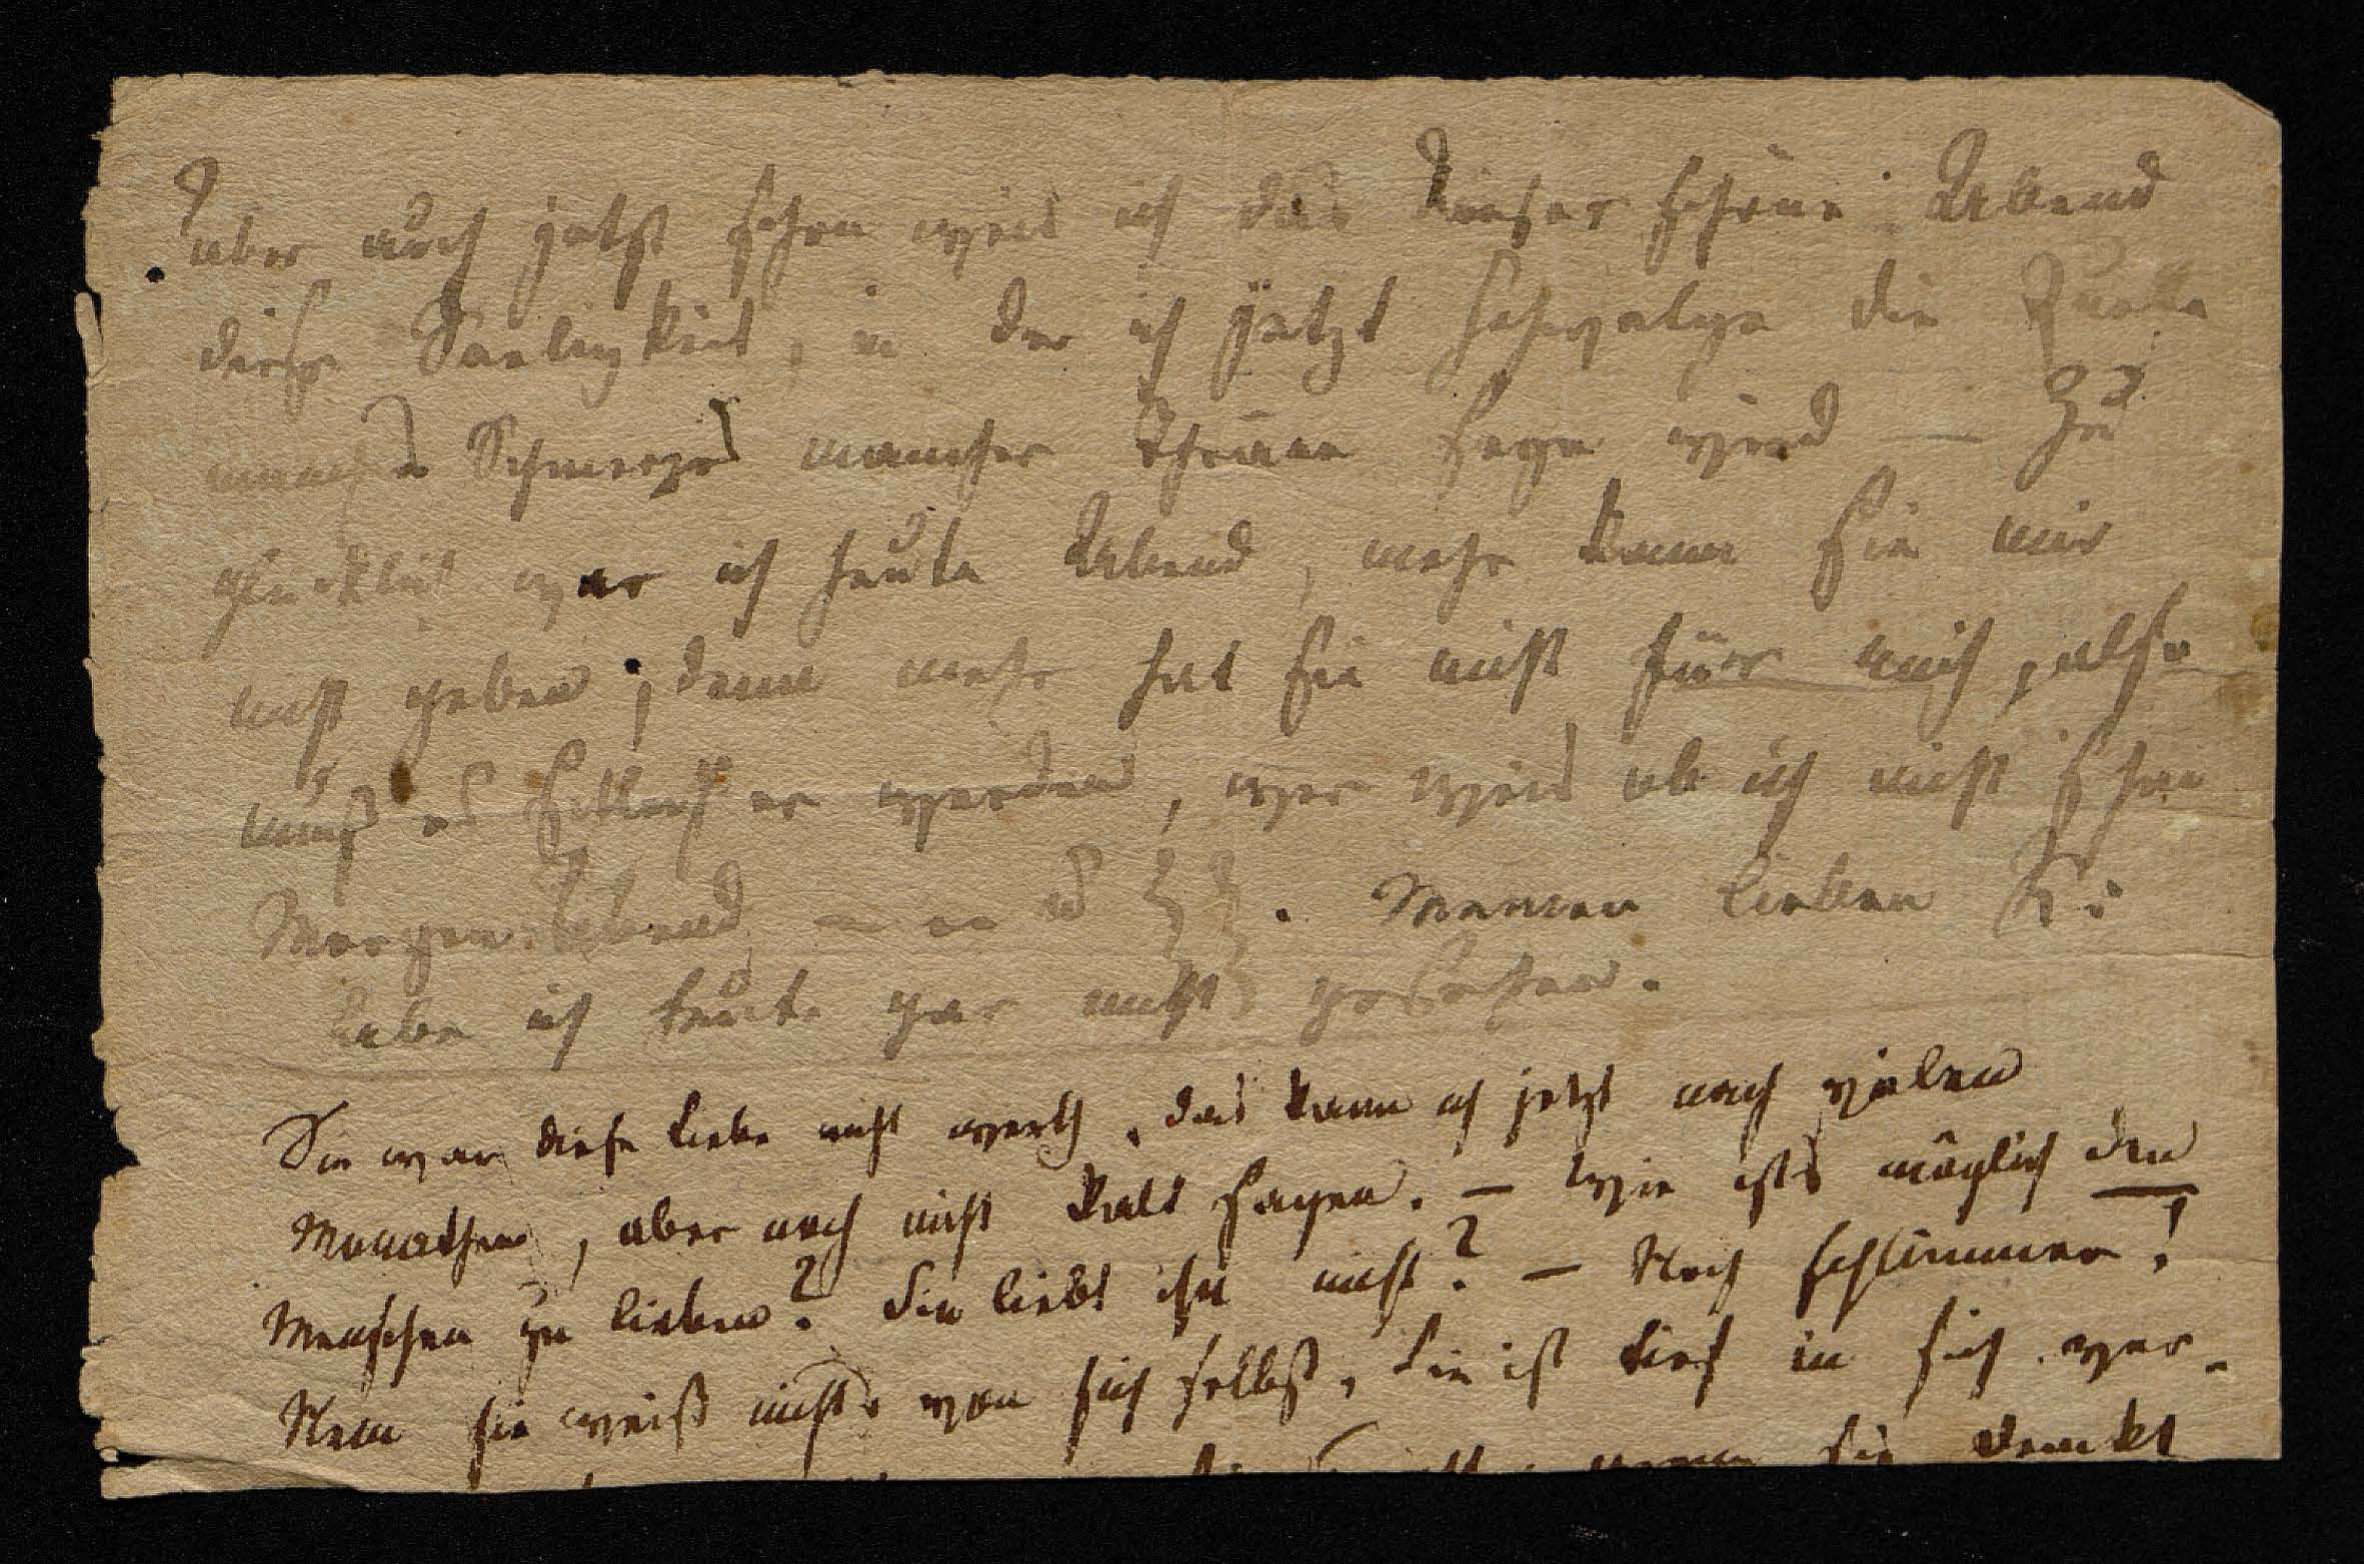 aber auch jetzt schon weis ich das dieser schöne Abend
diese Seeligkeit, in der ich jetzt schwelge die Quelle
manches Schmerzes mancher Thräne seyn wird — Zu
glücklich war ich heute Abend, mehr kann sie mir
nicht geben, denn mehr hat sie nicht für mich, also
muß es schlechter werden, wer weis ob ich nicht schon
Morgen Abend — Meinen lieben K:
habe ich heute gar nicht gesehen.
Sie war diese Liebe nicht werth, das kann ich jetzt nach vielen
Monathen, aber noch nicht kalt sagen. — Wie ists möglich den
Menschen zu lieben? Sie liebt ihn nicht? — Noch schlimmer!
Nein sie weiß nichts von sich selbst, sie ist tief in sich ver-
wenn sie denkt